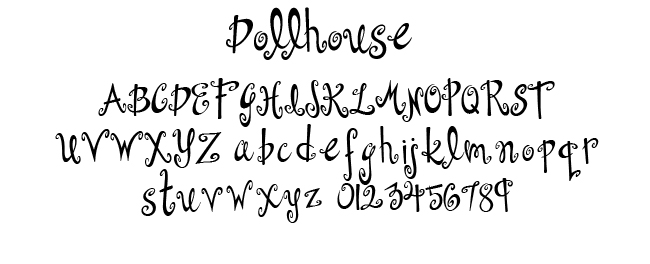 Dollhouse
ABCDEFGHIJKLMNOPQRST
UVWXYZ abcdefghijklmnopqr
stuvwxyz 0123456789